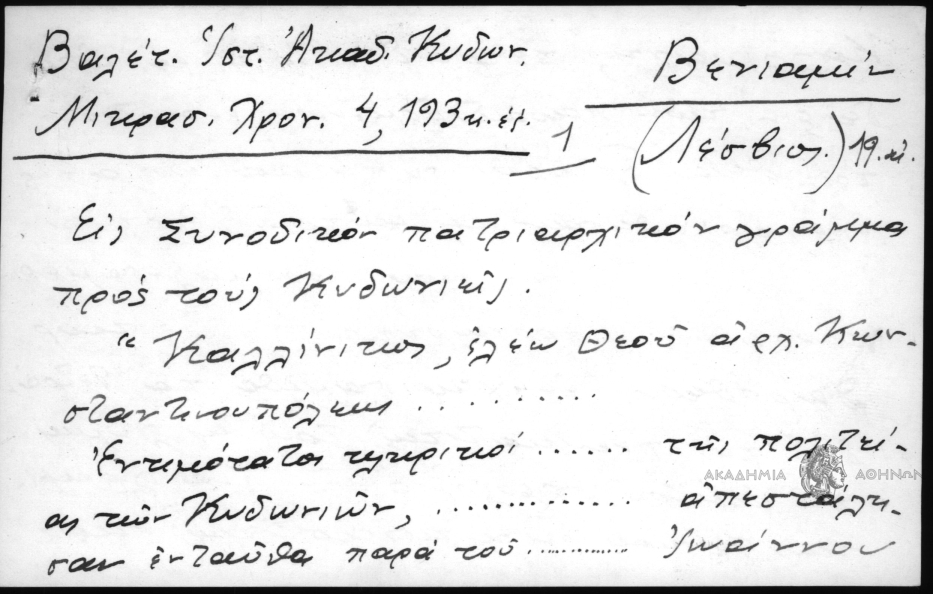 Βαλέτ. Ἱστ. Ἀκαδ. Κυδων.
Βενιαμίν
Μικρασ. Χρον. 4, 193 κ.ἑξ.
1
(Λέσβιος) 19.αἰ.
Εἰς Συνοδικόν πατριαρχικόν γράμμα
πρός τούς Κυδωνιεῖς.
"Καλλίνικος, ἐλέῳ Θεοῦ ἀρχ. Κων-
σταντινουπόλεως . . . . . . . . . .
Ἐντιμότατοι κληρικοί ...... τῆς πολιτεί-
ας τῶν Κυδωνιῶν, .............. ἀπεστάλη-
σαν ἐνταῦθα παρά τοῦ ............ Ἰωάννου
ΑΚΑΔΗΜΙΑ ΑΘΗΝΩΝ